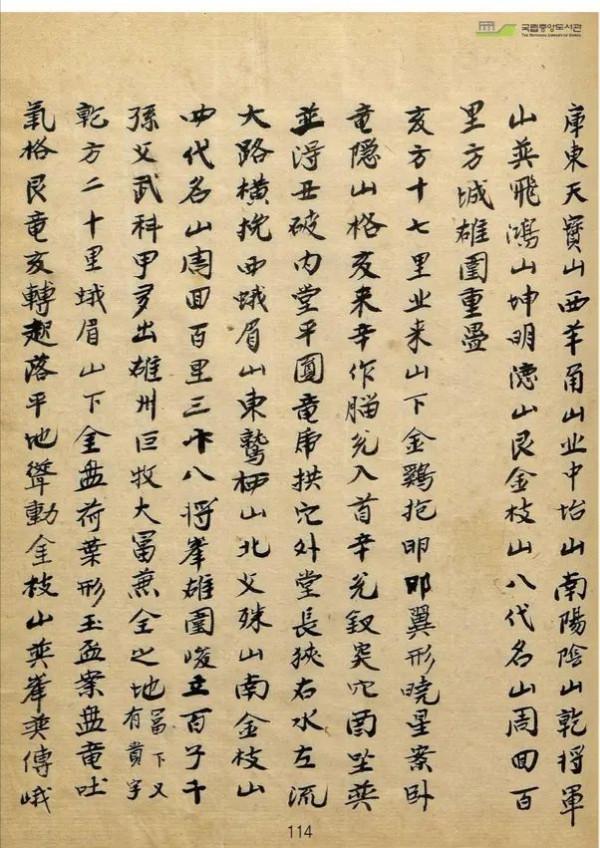 국립중앙도서관
THE NATIONAL LIBRARY OF KOREA
庫東天寶山西羊角山业中坮山南陽陰山乾將軍
山巽飛鴻山坤明德山艮金枝山八代名山周回百
里方城雄圍重疊
亥方十七里业来山下金鷄抱卵卵翼形曉星案卧
竜隠山格亥来辛作腦兌入首辛兌釵突穴酉坐巽
並淂丑破内堂平圓竜虎拱穴外堂長狹右水左流
大路橫挽西蛾眉山東鷲栖山北父殊山南金枝山
四代名山周回百里三十八將峯雄圍峻立百子千
孫父武科甲多出雄州巨牧大冨兼全之地冨下又有貴字
乾方二十里蛾眉山下金盘荷葉形玉盃案盘竜吐
氣格艮竜亥轉越落平地聳動金枝山巽峯巽傳峨
114